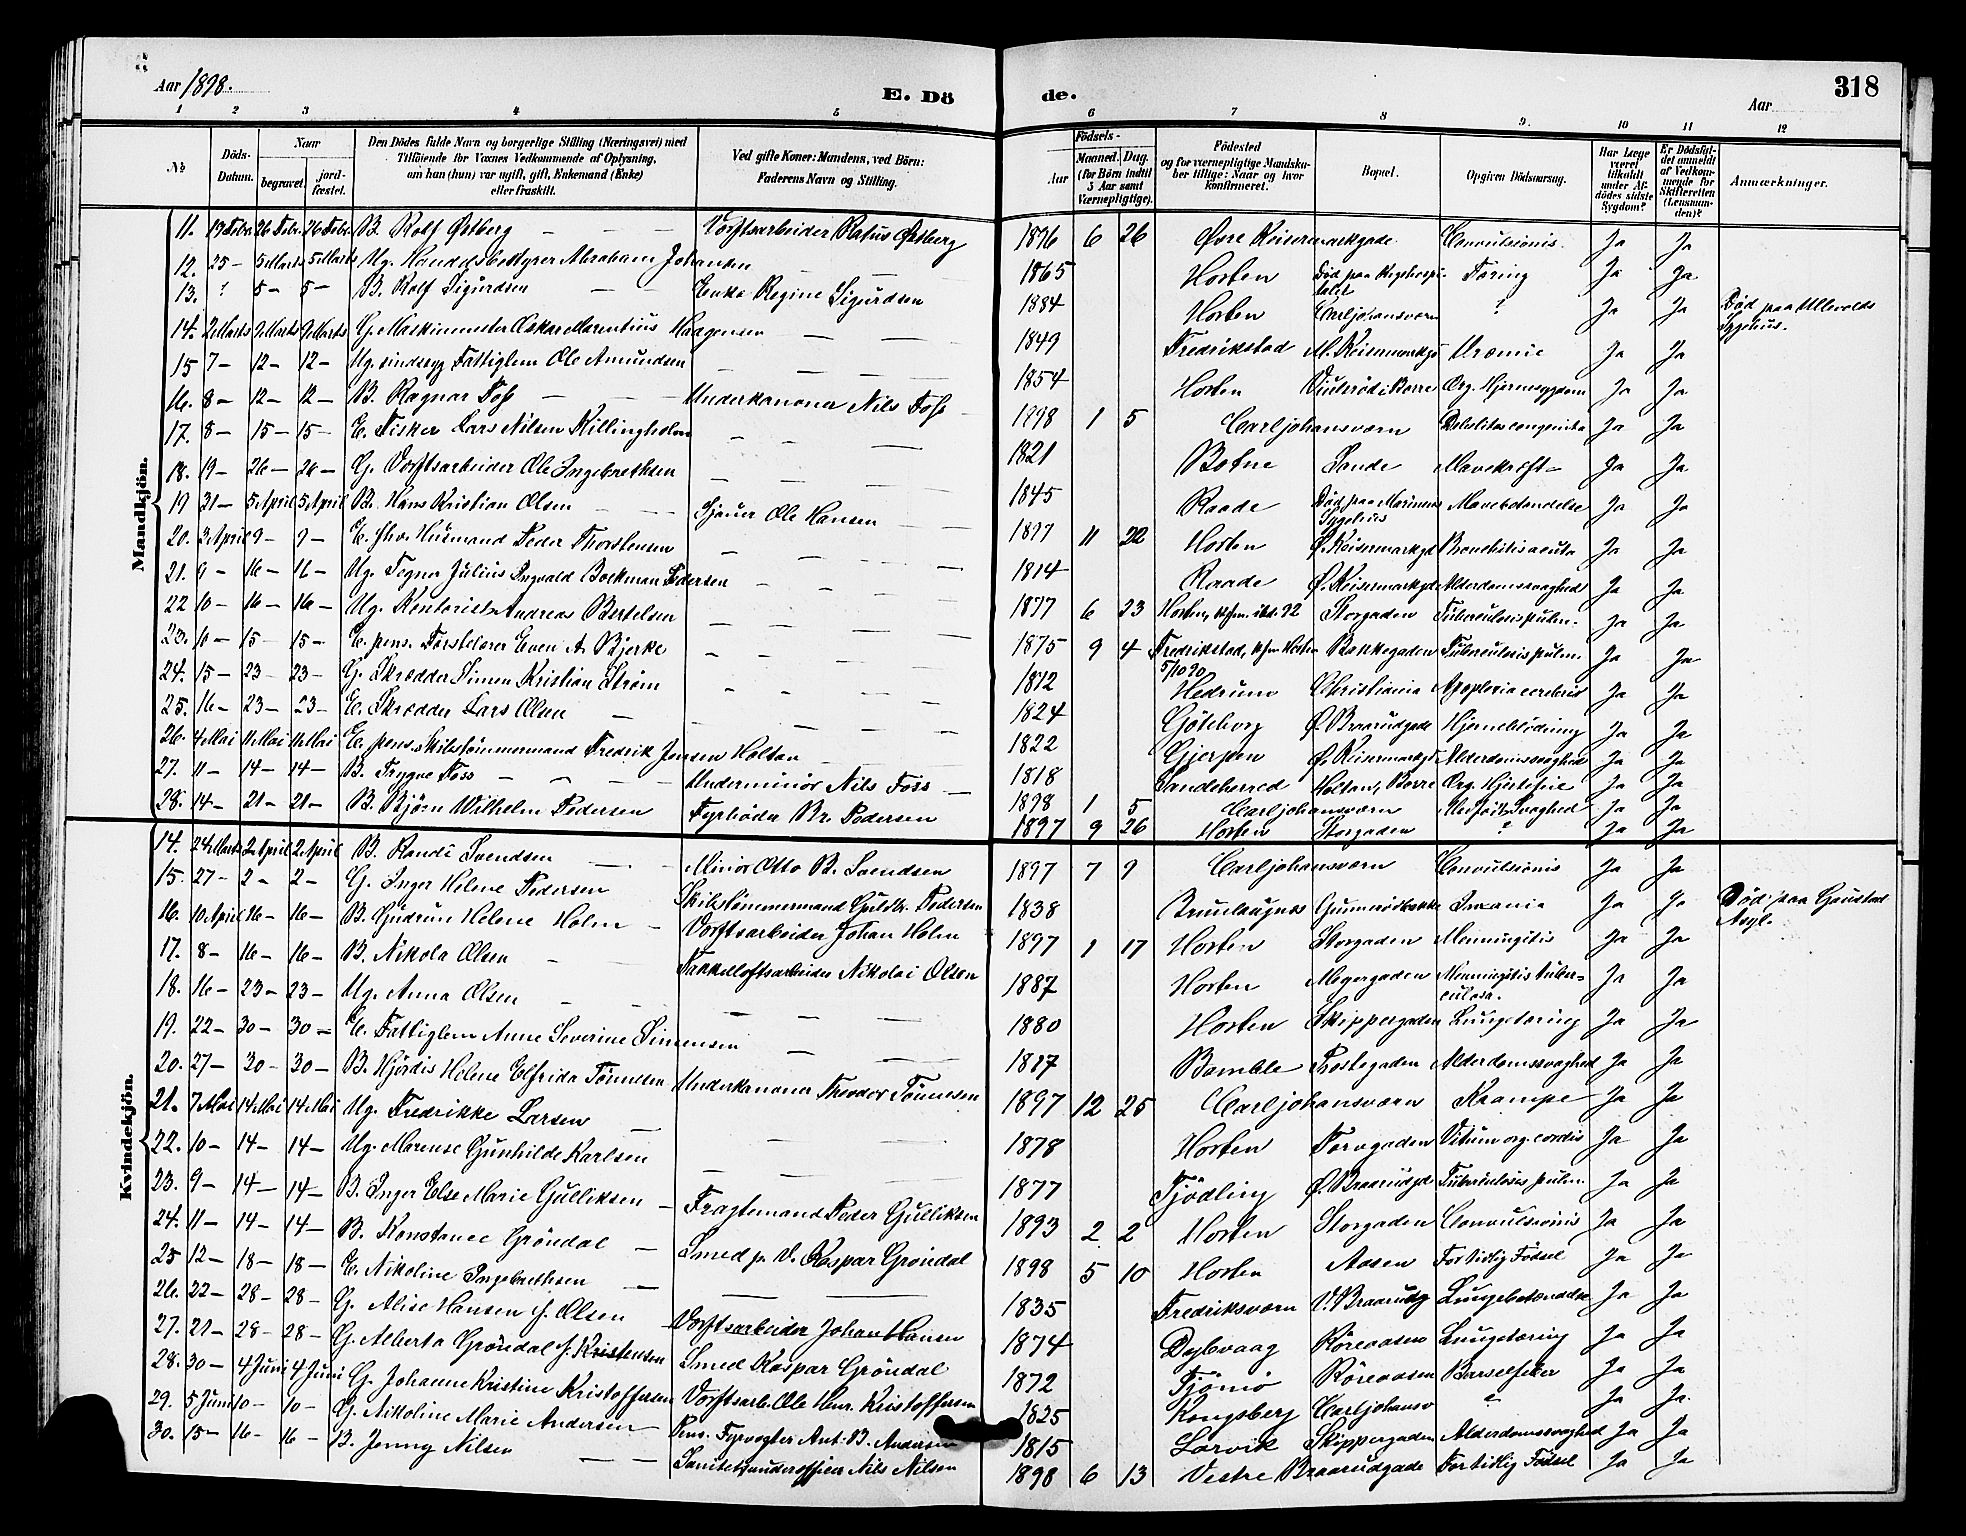 Aar 1898.
E. Dö de.
Aar
318
1 2 3 4 5 6 7 8 9. 10 11 12
No
Döds-Datum.
Naar
begravet.
jord-fæstet.
Den Dödes fulde Navn og borgerlige Stilling (Næringsvei) med Tilföiende for Voxnes Vedkommende af Oplysning, om han (hun) var ugift, gift, Enkemand (Enke) eller fraskilt.
Ved gifte Koner: Mandens, ved Börn: Faderens Navn og Stilling.
Födsels-
Aar
Maaned. Dag. (for Börn indtil 5 Aar samt Værnepligtige).
Födested og for værnepligtige Mandskaber tillige: Naar og hvor konfirmeret.
Bopæl.
Opgiven Dödsaarsag.
Har Læge været tilkaldt under Afdödes sidste Sygdom?
Er Dödsfaldet anmeldt af Vedkommende for Skifteretten (Lensmanden)?
Anmærkninger.
Mandkjön.
11. 19 Febr. 26 Febr. 26 Febr. B. Rolf Østberg — Værftsarbeider Østberg 1896 6 26 Øvre Keisermarkgade Convulsionis Ja Ja
12. 25 — 5 Marts 5 Marts Ug. Handelsbestyrer Abraham Johansen — 1865 Horten Død paa Rigshospitalet Tæring Ja Ja
13. ? 5 — 5 — B. Rolf Sigurdsen — Enke Regine Sigurdsen 1884 Horten Carljohansværn ? Ja Ja Død paa Ullevolds Sygehus.
14. 2 Marts 9 Marts 9 Marts G. Maskinmester Oskar Marentius Haagensen — 1849 Fredrikstad Uræmie Ja Ja
15 7 — 12 — 12 — Ug. sindssyg Fattiglem Ole Amundsen — 1854 Horten Borre Org. Hjernesygdom Ja Ja
16. 8 — 12 — 12 — B. Ragnar Foss — Underkanoner Nils Foss 1898 1 5 Carljohansværn Debilitas congenita Ja Ja
17. 8 — 15 — 15 — E. Fisker Lars Nilsen Killingholm — 1821 Botne Sande Mavekræft — Ja Ja
18. 19 — 26 — 26 — G. Værftsarbeider Ole Ingebrethsen — 1845 Raade Død paa Marinens Sygehus Mavebetændelse Ja Ja
19 31 — 5 April 5 April B. Hans Kristian Olsen — Sjauer Ole Hansen 1897 11 22 Horten Ø. Keisermarkgd Bronchitis acuta Ja Ja
20. 3 April 9 — 9 — E. fhv. Husmand Peder Thorstensen — 1814 Raade Ø. Keisermarkgd Alderdomssvaghed Ja Ja
21. 9 — 16 — 16 — Ug. Tegner Julius Ingvald Bockman Pedersen — 1877 6 23 Horten, Storgaden Tuberculosis pulm. Ja Ja
22 10 — 16 — 16 — Ug. Kontorist Andreas Bertelsen — 1875 9 4 Fredrikstad, kfm Horten 5/10 90 Bakkegaden Tuberculosis pulm. Ja Ja
23. 10 — 15 — 15 — E. pens. Førstelærer Even A. Bjerke — 1812 Hedrum Christiania Apoplexia cerebris Ja Ja
24. 15 — 23 — 23 — G. Skrædder Simen Kristian Strøm — 1824 Göteborg Ø. Braarudgade Hjerneblödning Ja Ja
25. 16 — 23 — 23 — E. Skrædder Lars Olsen — 1822 Gjerpen Ø. Keisermarkgd Alderdomssvaghed Ja Ja
26. 4 Mai 11 Mai 11 Mai E. pens. Skibstömmermand Fredrik Jensen Holtan — 1818 Sandeherred Holtan, Borre Org. Hjertefeil Ja Ja
27. 11 — 14 — 14 — B. Trygve Foss — Underminör Nils Foss — 1898 1 5 Carljohansværn Svaghed Ja Ja
28. 14 — 21 — 21 — B. Björn Wilhelm Pedersen Fyrböder Br. Pedersen 1897 9 26 Horten Storgaden ? Ja Ja
Kvindekjön.
14. 24 Marts 2 April 2 April B. Randi Svendsen — Minör Otto B. Svendsen 1897 7 9 Carljohansværn Convulsionis Ja Ja
15. 27 — 2 — 2 — G. Inger Helene Pedersen Skibstömmermand Guldbr. Pedersen 1838 Brunlaugnes Gunnerödbakke Insania Ja Ja Død paa Gaustad Asyl.
16. 10 April 16 — 16 — B. Gudrun Helene Holm — Værftsarbeider Johan Holm 1897 1 17 Horten Storgaden Meningitis Ja Ja
17. 8 — 16 — 16 — B. Nikola Olsen — Takkelloftsarbeider Nikolai Olsen 1887 Horten Meyergaden Menningitis tuberculosa. Ja Ja
18. 16 — 23 — 23 — Ug. Anna Olsen — 1880 Horten Skippergaden Lungetæring Ja Ja
19. 22 — 30 — 30 — E. Fattiglem Anne Severine Simensen — 1817 Bamble Alderdomssvaghed Ja Ja
20. 27 — 30 — 30 — B. Hjördis Helene Elfrida Tönnesen Underkanoner Theodor Tönnesen 1897 12 25 Carljohansværn Krampe Ja Ja
21. 7 Mai 14 Mai 14 Mai Ug. Fredrikke Larsen — 1878 Horten Torvgaden Vitium org. cordis Ja Ja
22. 10 — 14 — 14 — Ug. Marense Gunhilde Karlsen — 1877 Tjödling Ø. Braarudgd Tuberculosis pulm. Ja Ja
23. 9 — 14 — 14 — B. Inger Else Marie Gulliksen — Fragtemand Peder Gulliksen 1893 2 2 Horten Storgaden Convulsionis Ja Ja
24. 11 — 14 — 14 — B. Konstance Gröndal — Smed p. V. Kaspar Gröndal 1898 5 10 Horten Aasen For tidlig Födsel Ja Ja
25 12 — 18 — 18 — E. Nikoline Ingebrethsen — 1835 Fredriksværn V. Braarudg Lungebetændelse Ja Ja
26. 22 — 28 — 28 — G. Alise Hansen f. Olsen Værftsarbeider Johan Hansen 1874 Dybvaag Röreaasen Lungetæring Ja Ja
27. 21 — 28 — 28 — G. Alberta Gröndal f. Kristensen Smed Kaspar Gröndal 1872 Tjömö Röreaasen Barselfeber Ja Ja
28. 30 — 4 Juni 4 Juni G. Johanne Kristine Kristoffersen Værftsarb. Ole Henr. Kristoffersen 1825 Kongsberg Carljohansv ? Ja Ja
29. 5 Juni 10 — 10 — G. Nikoline Marie Andersen — Pens. Fyrvogter Ant. B. Andersen 1815 Larvik Skippergaden Alderdomssvaghed Ja Ja
30. 15 — 16 — 16 — B. Jenny Nilsen — Sanitetsunderofficer Nils Nilsen 1898 6 13 Vestre Braarudgade For tidlig Födsel Ja Ja